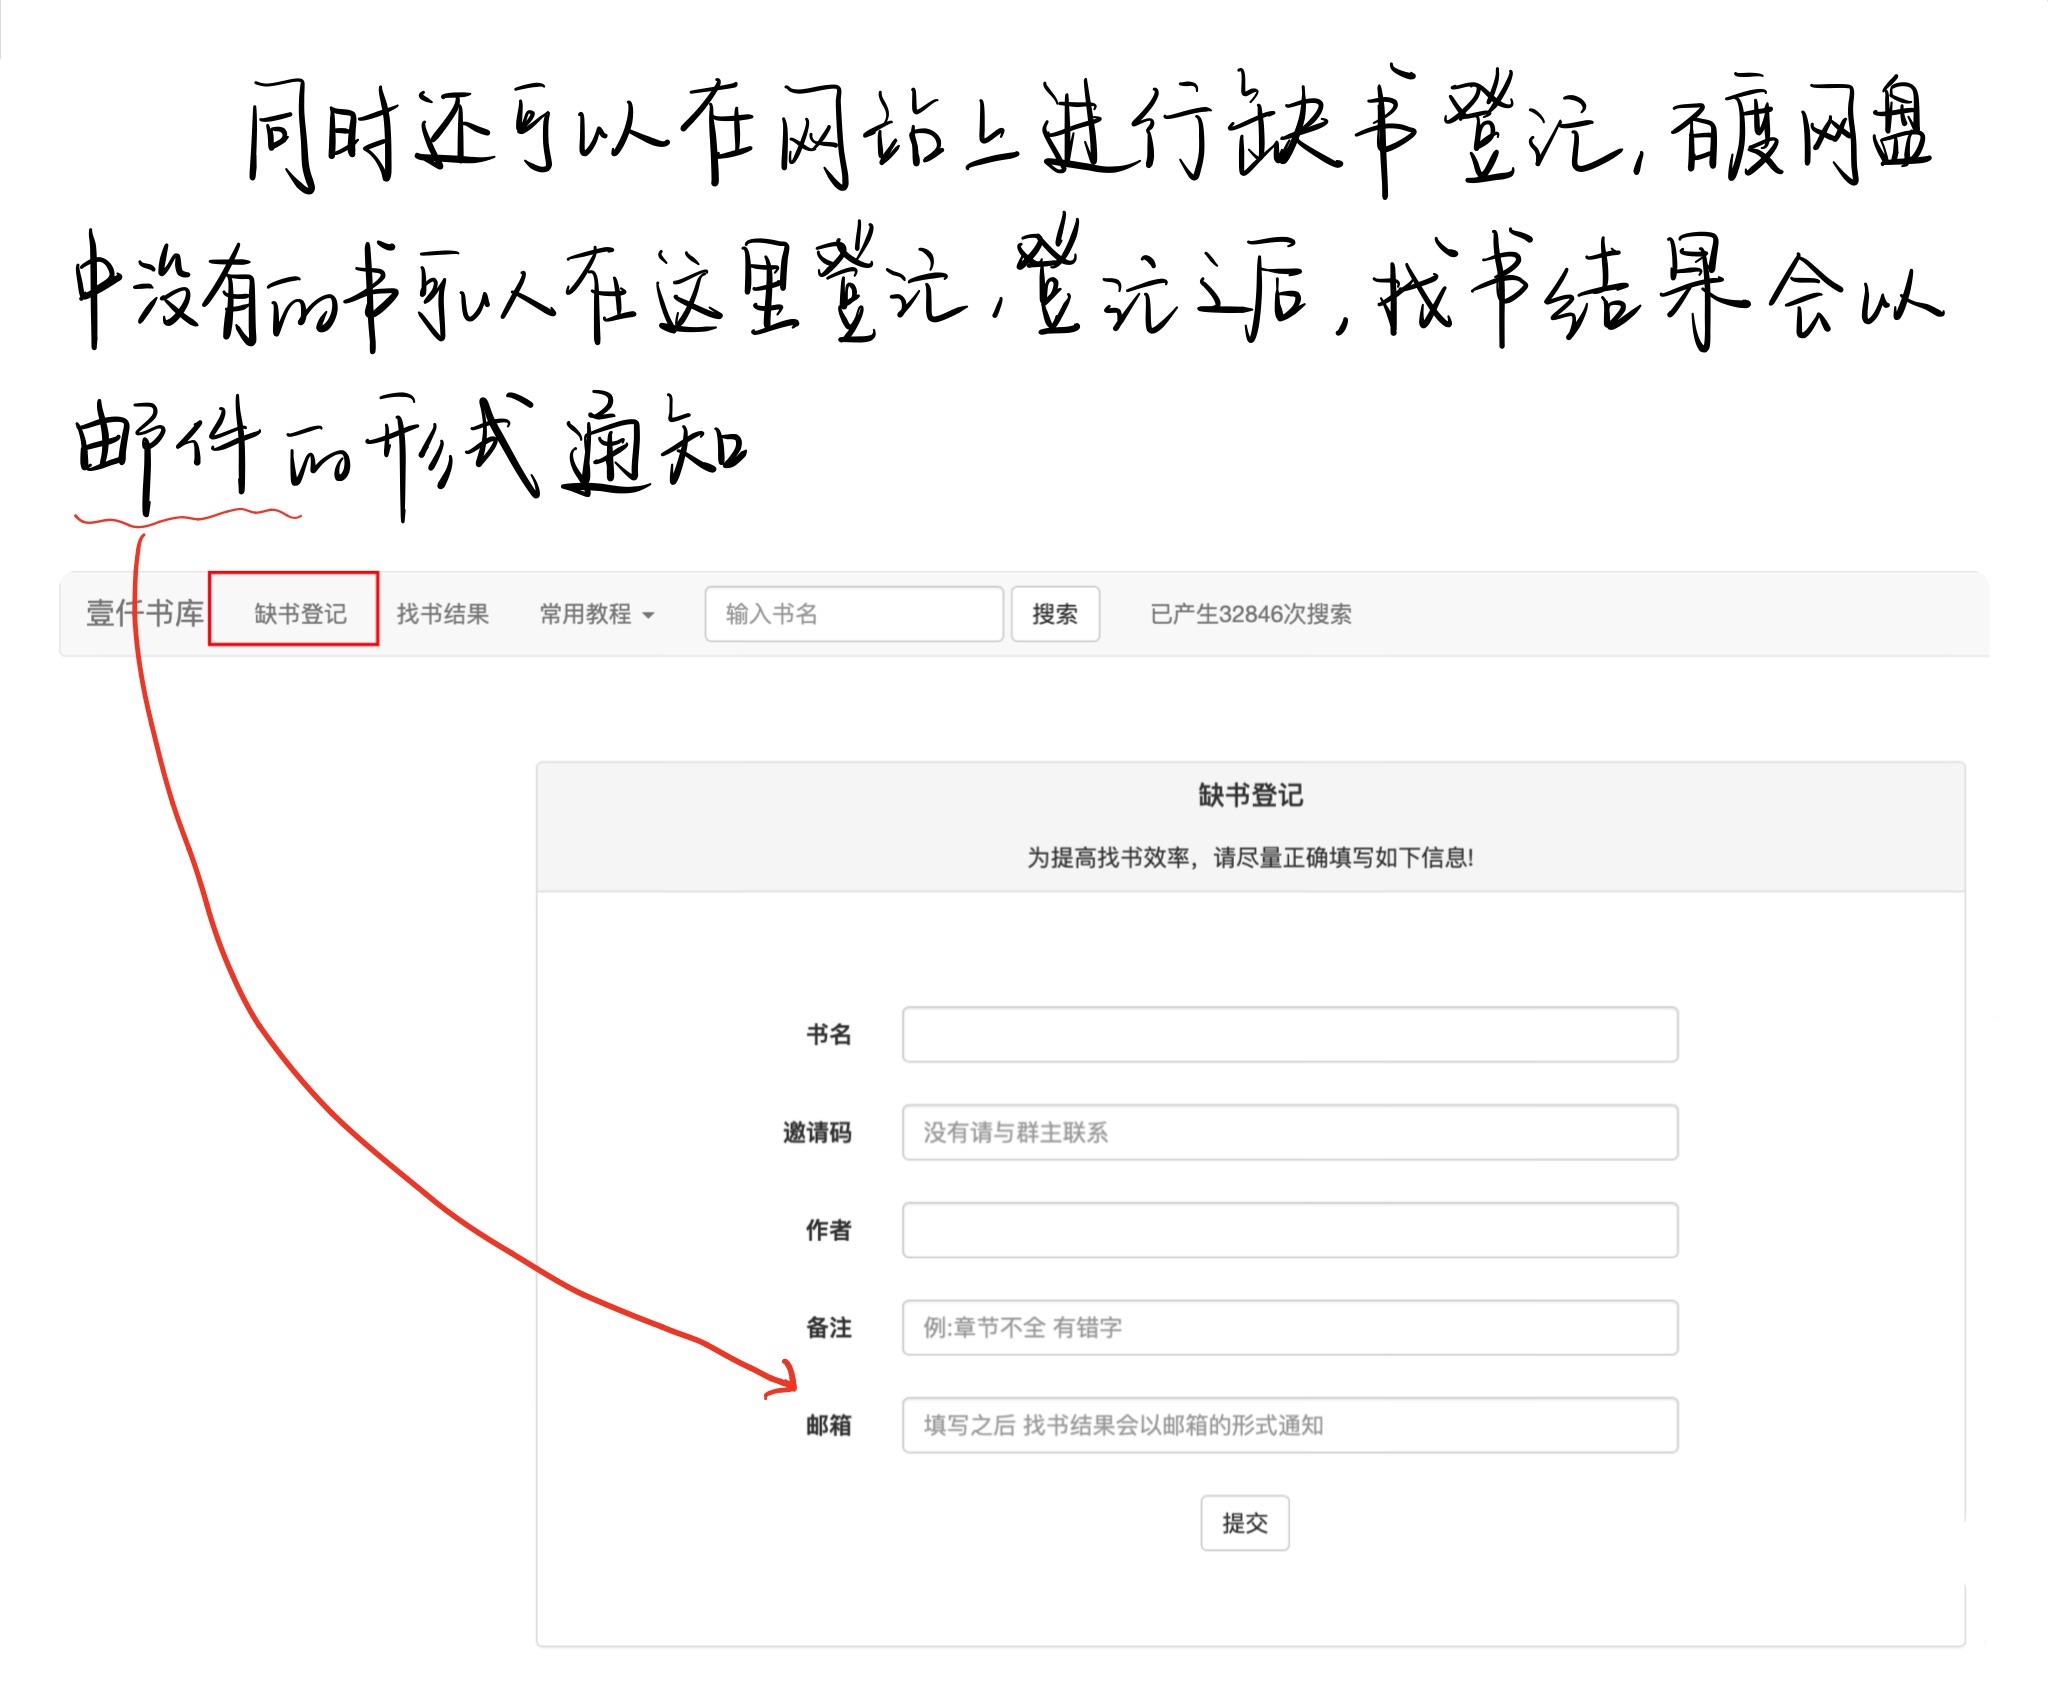 同时还可以在网站上进行缺书登记，百度网盘
中没有的书可以在这里登记，登记之后，找书结果会以
邮件的形式通知
壹仟书库 缺书登记 找书结果 常用教程 输入书名 搜索 已产生32846次搜索
缺书登记
为提高找书效率，请尽量正确填写如下信息!
书名
邀请码 没有请与群主联系
作者
备注 例:章节不全 有错字
邮箱 填写之后 找书结果会以邮箱的形式通知
提交